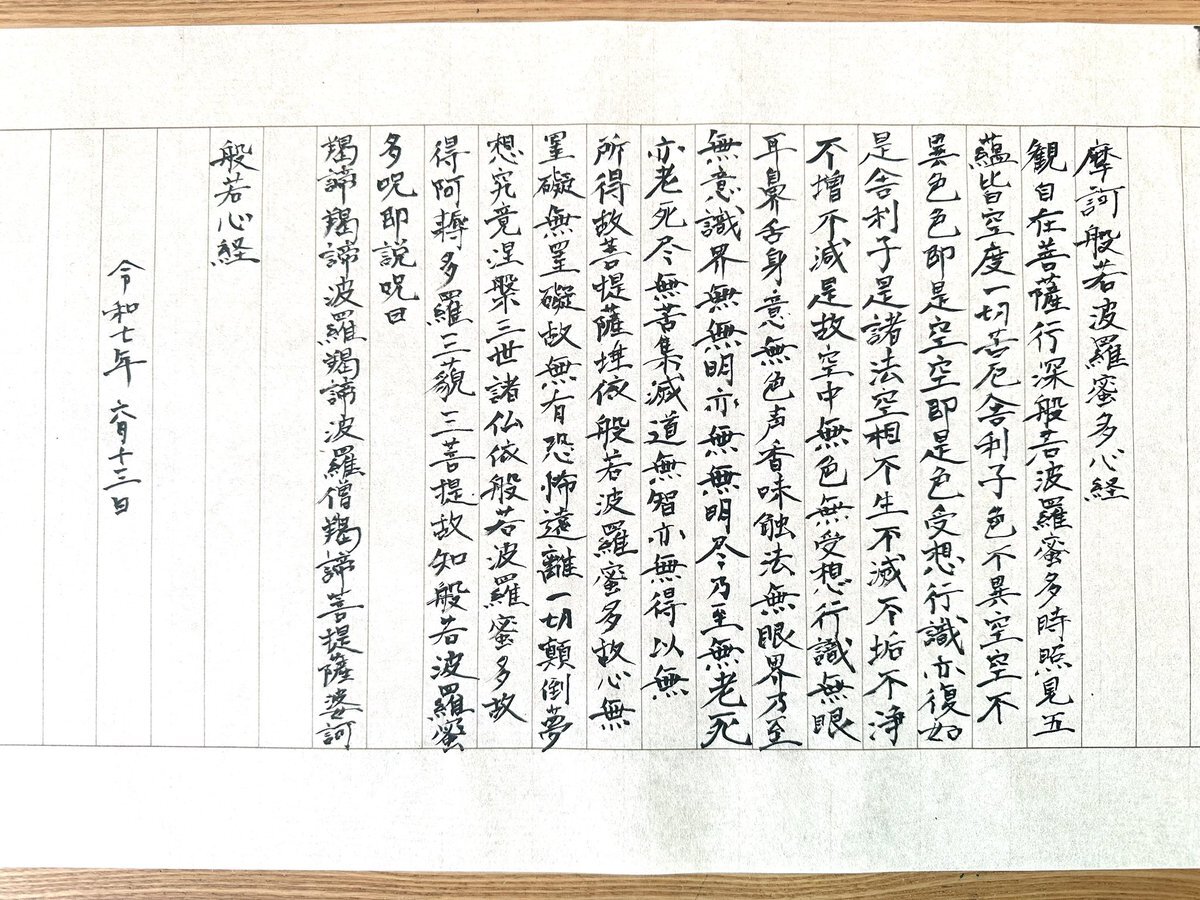 摩訶般若波羅蜜多心経
観自在菩薩行深般若波羅蜜多時照見五
蘊皆空度一切苦厄舎利子色不異空空不
異色色即是空空即是色受想行識亦復如
是舎利子是諸法空相不生不滅不垢不浄
不増不減是故空中無色無受想行識無眼
耳鼻舌身意無色声香味触法無眼界乃至
無意識界無無明亦無無明尽乃至無老死
亦老死尽無苦集滅道無智亦無得以無
所得故菩提薩埵依般若波羅蜜多故心無
罣礙無罣礙故無有恐怖遠離一切顛倒夢
想究竟涅槃三世諸仏依般若波羅蜜多故
得阿耨多羅三藐三菩提故知般若波羅蜜
多呪即説呪曰
羯諦羯諦波羅羯諦波羅僧羯諦菩提薩婆訶
般若心経
令和七年 六月十三日